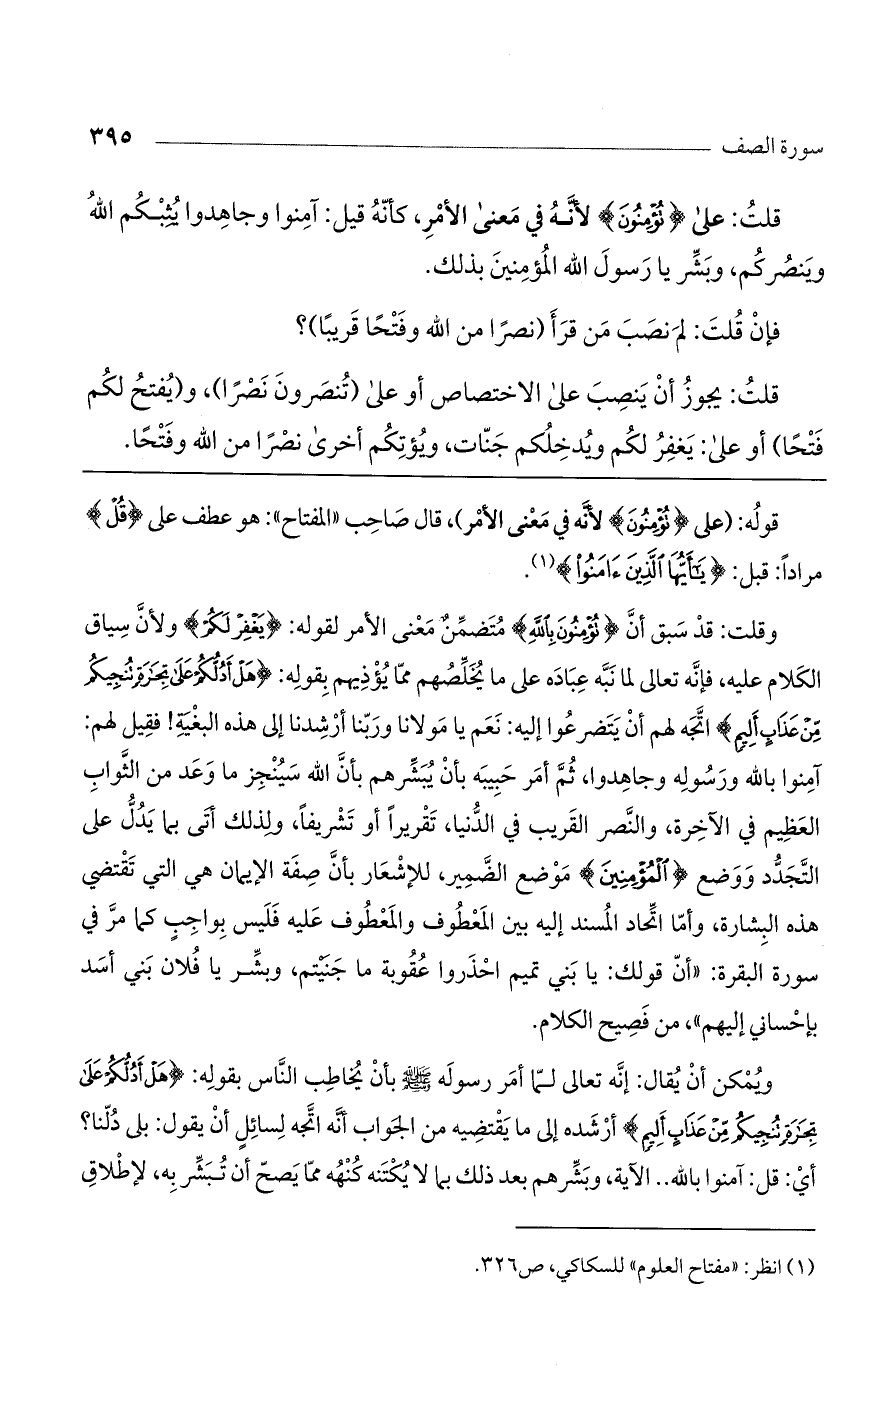 سورة الصف ٣٩٥
قلتُ: علىٰ ﴿نُؤْمِنُونَ﴾ لأنَّـهُ في مَعنىٰ الأمْرِ، كأنّهُ قيل: آمِنوا وجاهِدوا يُثِبْـكُم اللهُ
ويَنصُرْكُم، وبَشِّر يا رَسولَ الله المُؤمِنينَ بذلك.
فإنْ قُلتَ: لمَ نصَبَ مَن قرَأَ (نصرًا من الله وفَتْحًا قَريبًا)؟
قلتُ: يجوزُ أنْ يَنصِبَ علىٰ الاختصاص أو علىٰ (تُنصَرونَ نَصْرًا)، و(يُفتحُ لكُم
فَتْحًا) أو علىٰ: يَغفِرُ لكُم ويُدخِلُكم جَنّات، ويُؤتِكُم أخرىٰ نصْرًا من الله وفَتْحًا.
قولُه: (على ﴿نُؤْمِنُونَ﴾ لأنَّه في مَعْنى الأمْر)، قال صَاحِب «المفتاح»: هو عطف على ﴿قُلْ﴾
مراداً: قبل: ﴿يَٰٓأَيُّهَا ٱلَّذِينَ ءَامَنُوا۟﴾(١).
وقلت: قدْ سَبق أنَّ ﴿نُؤْمِنُونَ بِٱللَّهِ﴾ مُتَضمِّنٌ مَعْنى الأمر لقوله: ﴿يَغْفِرْ لَكُمْ﴾ ولأنَّ سِياق
الكَلام عليه، فإنَّه تعالى لما نَبَّه عِبَادَه على ما يُخَلِّصُهم ممّا يُؤْذِيهم بِقولِه: ﴿هَلْ أَدُلُّكُمْ عَلَىٰ تِجَٰرَةٍ تُنجِيكُم
مِّنْ عَذَابٍ أَلِيمٍ﴾ اتَّجَه لهم أنْ يَتَضرعُوا إليه: نَعَم يا مَولانا ورَبّنا أرْشِدنا إلى هذه البغْيَةِ! فقِيل لهم:
آمِنوا بالله ورَسُولِه وجاهِدوا، ثُمَّ أمَر حَبِيبَه بأنْ يُبَشِّرهم بأنَّ الله سَيُنْجِز ما وَعَد من الثَّوابِ
العَظِيم في الآخِرة، والنَّصر القَريب في الدُّنيا، تَقْريراً أو تَشْريفاً، ولِذلك أتَى بما يَدُلُّ على
التَّجَدُّد وَوَضع ﴿ٱلْمُؤْمِنِينَ﴾ مَوْضع الضَّمِير، للإشْعَار بأنَّ صِفَة الإيمان هي التي تَقْتضي
هذه البِشارة، وأمّا اتِّحاد المُسند إليه بين المَعْطُوف والمَعْطُوف عَليه فَلَيس بِواجِبٍ كما مرَّ في
سورة البقرة: «أنّ قولك: يا بَني تميم احْذَروا عُقُوبة ما جَنَيْتم، وبشِّـر يا فُلان بَني أسَد
بإحْساني إليهم»، من فَصِيح الكلام.
ويُمْكن أنْ يُقال: إنَّه تعالى لـمّا أمَر رسولَه ﷺ بأنْ يُخاطِب النَّاس بقولِه: ﴿هَلْ أَدُلُّكُمْ عَلَىٰ
تِجَٰرَةٍ تُنجِيكُم مِّنْ عَذَابٍ أَلِيمٍ﴾ أرْشَده إلى ما يَقْتضِيه من الجَواب أنَّه اتَّجه لِسائِلٍ أنْ يقول: بلى دُلّنا؟
أيْ: قل: آمنوا بالله.. الآية، وبَشِّرهم بعد ذلك بما لا يُكْتَنه كُنْهُه ممّا يَصحّ أن تُبَشِّر بِه، لإطْلاقِ
(١) انظر: «مفتاح العلوم» للسكاكي، ص٣٢٦.